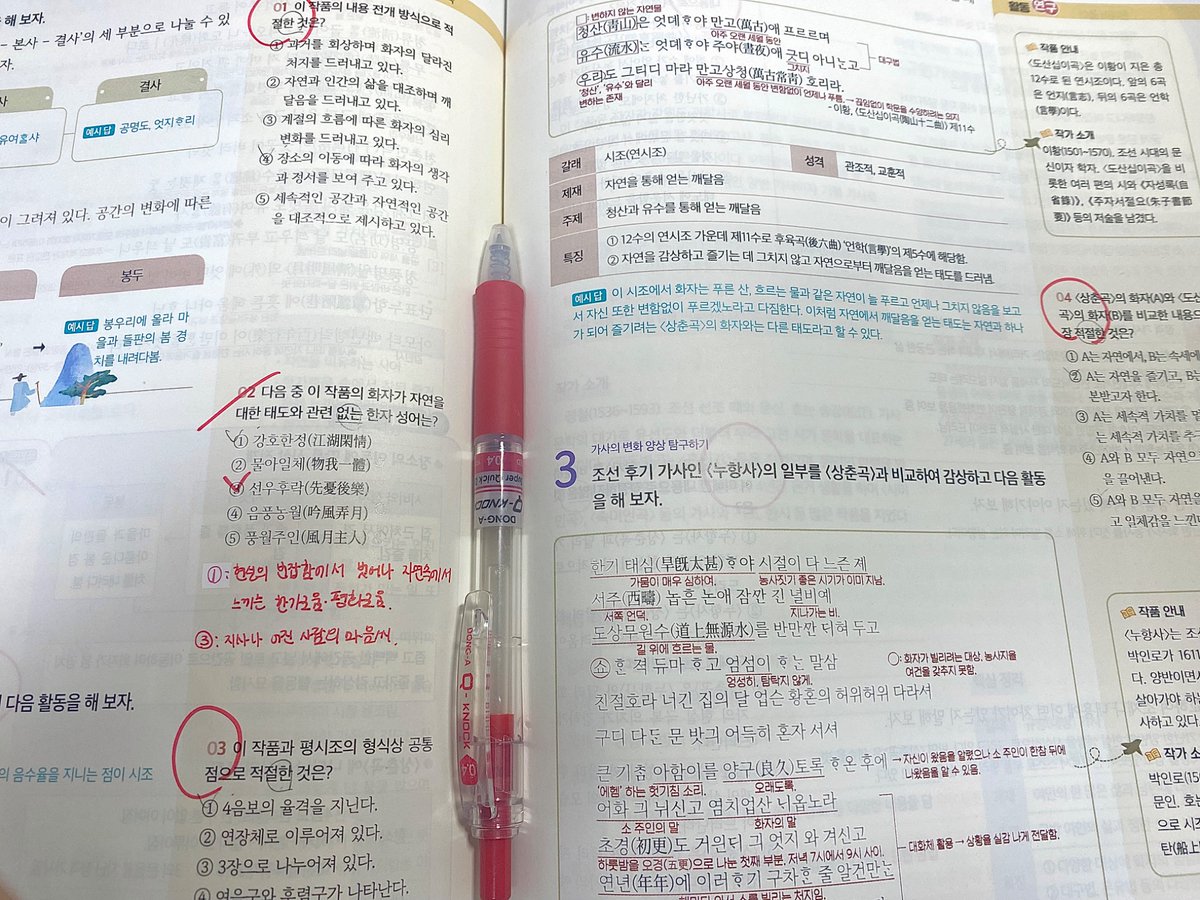 해 보자.
- 본사 - 결사'의 세 부분으로 나눌 수 있
자.
사
결사
유여흘샤
예시 답 공명도, 엇지흐리
이 그려져 있다. 공간의 변화에 따른
봉두
예시 답 봉우리에 올라 마
을과 들판의 봄 경
치를 내려다봄.
다음 활동을 해 보자.
의 음수율을 지니는 점이 시조
01 이 작품의 내용 전개 방식으로 적
절한 것은?
① 과거를 회상하며 화자의 달라진
처지를 드러내고 있다.
② 자연과 인간의 삶을 대조하며 깨
달음을 드러내고 있다.
③ 계절의 흐름에 따른 화자의 심리
변화를 드러내고 있다.
④ 장소의 이동에 따라 화자의 생각
과 경서를 보여 주고 있다.
⑤ 세속적인 공간과 자연적인 공간
을 대조적으로 제시하고 있다.
02 다음 중 이 작품의 화자가 자연을
대한 태도와 관련 없는 한자 성어는?
① 강호한정(江湖閑情)
② 물아일체(物我一體)
③ 선우후락(先憂後樂)
④ 음풍농월(吟風弄月)
⑤ 풍월주인(風月主人)
①: 현실의 번잡함에서 벗어나 자연속에서
느끼는 한가로움·평화로움.
③: 지사나 어진 사람의 마음씨
03 이 작품과 평시조의 형식상 공통
점으로 적절한 것은?
① 4음보의 율격을 지닌다.
② 연장체로 이루어져 있다.
③ 3장으로 나누어져 있다.
④ 여음구와 후렴구가 나타난다.
DONG-A Q-KNOCK 0.4
Super Quick
DONG-A Q-KNOCK 0.4
활동 연구
□: 변하지 않는 자연물
청산(靑山)은 엇뎨ᄒᆞ야 만고(萬古)애 프르르며
아주 오랜 세월 동안
유수(流水)는 엇뎨ᄒᆞ야 주야(晝夜)애 긋디 아니ᄂᆞᆫ고
그치지
대구법
우리도 그티디 마라 만고상청(萬古常靑) 호리라.
'청산', '유수'와 달리
변하는 존재
아주 오랜 세월 동안 변함없이 언제나 푸름. → 끊임없이 학문을 수양하려는 의지
- 이황, 〈도산십이곡(陶山十二曲)〉 제11수
갈래 시조(연시조) 성격 관조적, 교훈적
제재 자연을 통해 얻는 깨달음
주제 청산과 유수를 통해 얻는 깨달음
특징 ① 12수의 연시조 가운데 제11수로 후육곡(後六曲) '언학(言學)'의 제5수에 해당함.
② 자연을 감상하고 즐기는 데 그치지 않고 자연으로부터 깨달음을 얻는 태도를 드러냄.
예시 답 이 시조에서 화자는 푸른 산, 흐르는 물과 같은 자연이 늘 푸르고 언제나 그치지 않음을 보고
서 자신 또한 변함없이 푸르겠노라고 다짐한다. 이처럼 자연에서 깨달음을 얻는 태도는 자연과 하나
가 되어 즐기려는 〈상춘곡〉의 화자와는 다른 태도라고 할 수 있다.
가사의 변화 양상 탐구하기
3 조선 후기 가사인 〈누항사〉의 일부를 〈상춘곡〉과 비교하여 감상하고 다음 활동
을 해 보자.
한기 태심(旱旣太甚)ᄒᆞ야 시절이 다 느즌 제
가뭄이 매우 심하여. 농사짓기 좋은 시기가 이미 지남.
서주(西疇) 놉흔 논애 잠ᄭᅡᆫ 긴 녈비예
서쪽 언덕. 지나가는 비.
도상무원수(道上無源水)를 반만ᄭᅡᆫ 더혀 두고
길 위에 흐르는 물.
쇼 ᄒᆞᆫ 젹 듀마 ᄒᆞ고 엄섬이 ᄒᆞᄂᆞᆫ 말삼
엉성히, 탐탁지 않게.
○: 화자가 빌리려는 대상, 농사지을
여건을 갖추지 못함.
친절호라 너긴 집의 달 업슨 황혼의 허위허위 다라서
구디 다든 문 밧긔 어득히 혼자 서셔
큰 기춤 아함이를 양구(良久)토록 ᄒᆞ온 후에
'에헴' 하는 헛기침 소리. 오래도록.
→ 자신이 왔음을 알렸으나 소 주인이 한참 뒤에
나왔음을 알 수 있음.
어화 긔 뉘신고 염치업산 닉옵노라
소 주인의 말 화자의 말
초경(初更)도 거윈ᄃᆡ 긔 엇지 와 겨신고
하룻밤을 오경(五更)으로 나눈 첫째 부분, 저녁 7시에서 9시 사이.
대화체 활용 → 상황을 실감 나게 전달함.
연년(年年)에 이러ᄒᆞ기 구차ᄒᆞᆫ 줄 알건만ᄂᆞᆫ
해마다 와서 소를 빌리는 처지임.
작품 안내
〈도산십이곡〉은 이황이 지은 총
12수로 된 연시조이다. 앞의 6곡
은 언지(言志), 뒤의 6곡은 언학
(言學)이다.
작가 소개
이황(1501~1570), 조선 시대의 문
신이자 학자. 〈도산십이곡〉을 비
롯한 여러 편의 시와 《자성록(自
省錄)》, 《주자서절요(朱子書節
要)》 등의 저술을 남겼다.
04 〈상춘곡〉의 화자(A)와 〈도
곡〉의 화자(B)를 비교한 내용으
장 적절한 것은?
① A는 자연에서, B는 속세에
② A는 자연을 즐기고, B는
본받고자 한다.
③ A는 세속적 가치를 멀
는 세속적 가치를 추구
④ A와 B 모두 자연으
을 끌어낸다.
⑤ A와 B 모두 자연
고 일체감을 느낀
작품 안내
〈누항사〉는 조선
박인로가 1611
다. 양반이면서
살아가야 하는
사하고 있다.
작가 소
박인로(15
문인. 호는
으로 시조
탄(船上